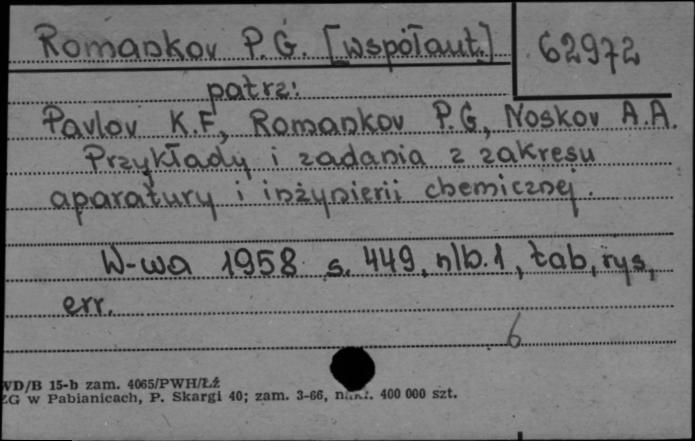 Romankov P.G. [współaut.]
62972
patrz:
Pavlov K.F., Romankov P.G., Noskov A.A.
Przykłady i zadania z zakresu
aparatury i inżynierii chemicznej.
W-wa 1958 s. 449, nlb. 1, tab., rys.,
err.
6
WD/B 15-b zam. 4065/PWH/Łź
ZG w Pabianicach, P. Skargi 40; zam. 3-66, 400 000 szt.